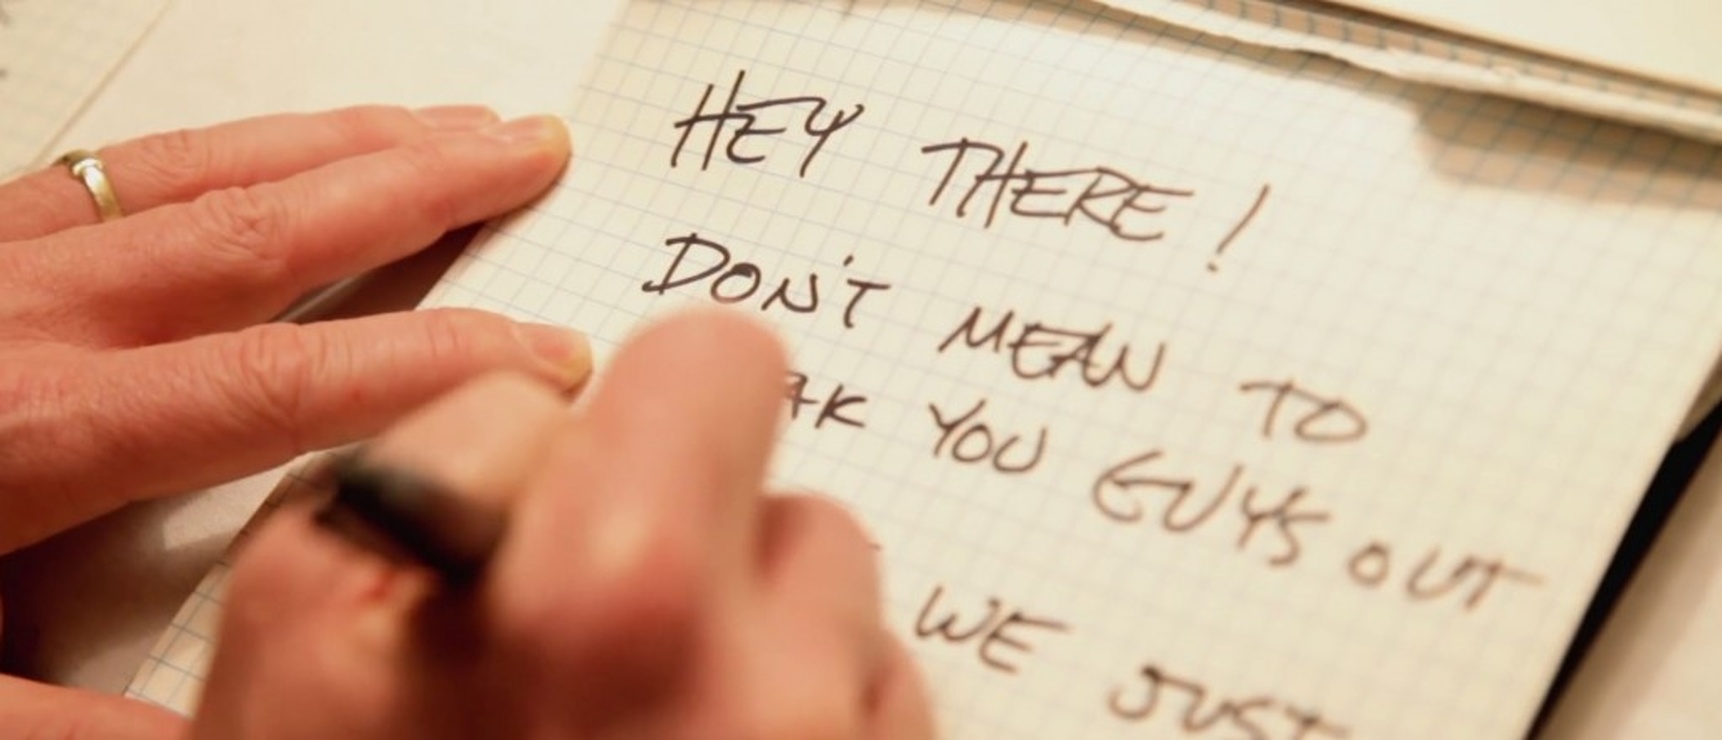 HEY THERE!
DON'T MEAN TO
AK YOU GUYS OUT
WE JUST